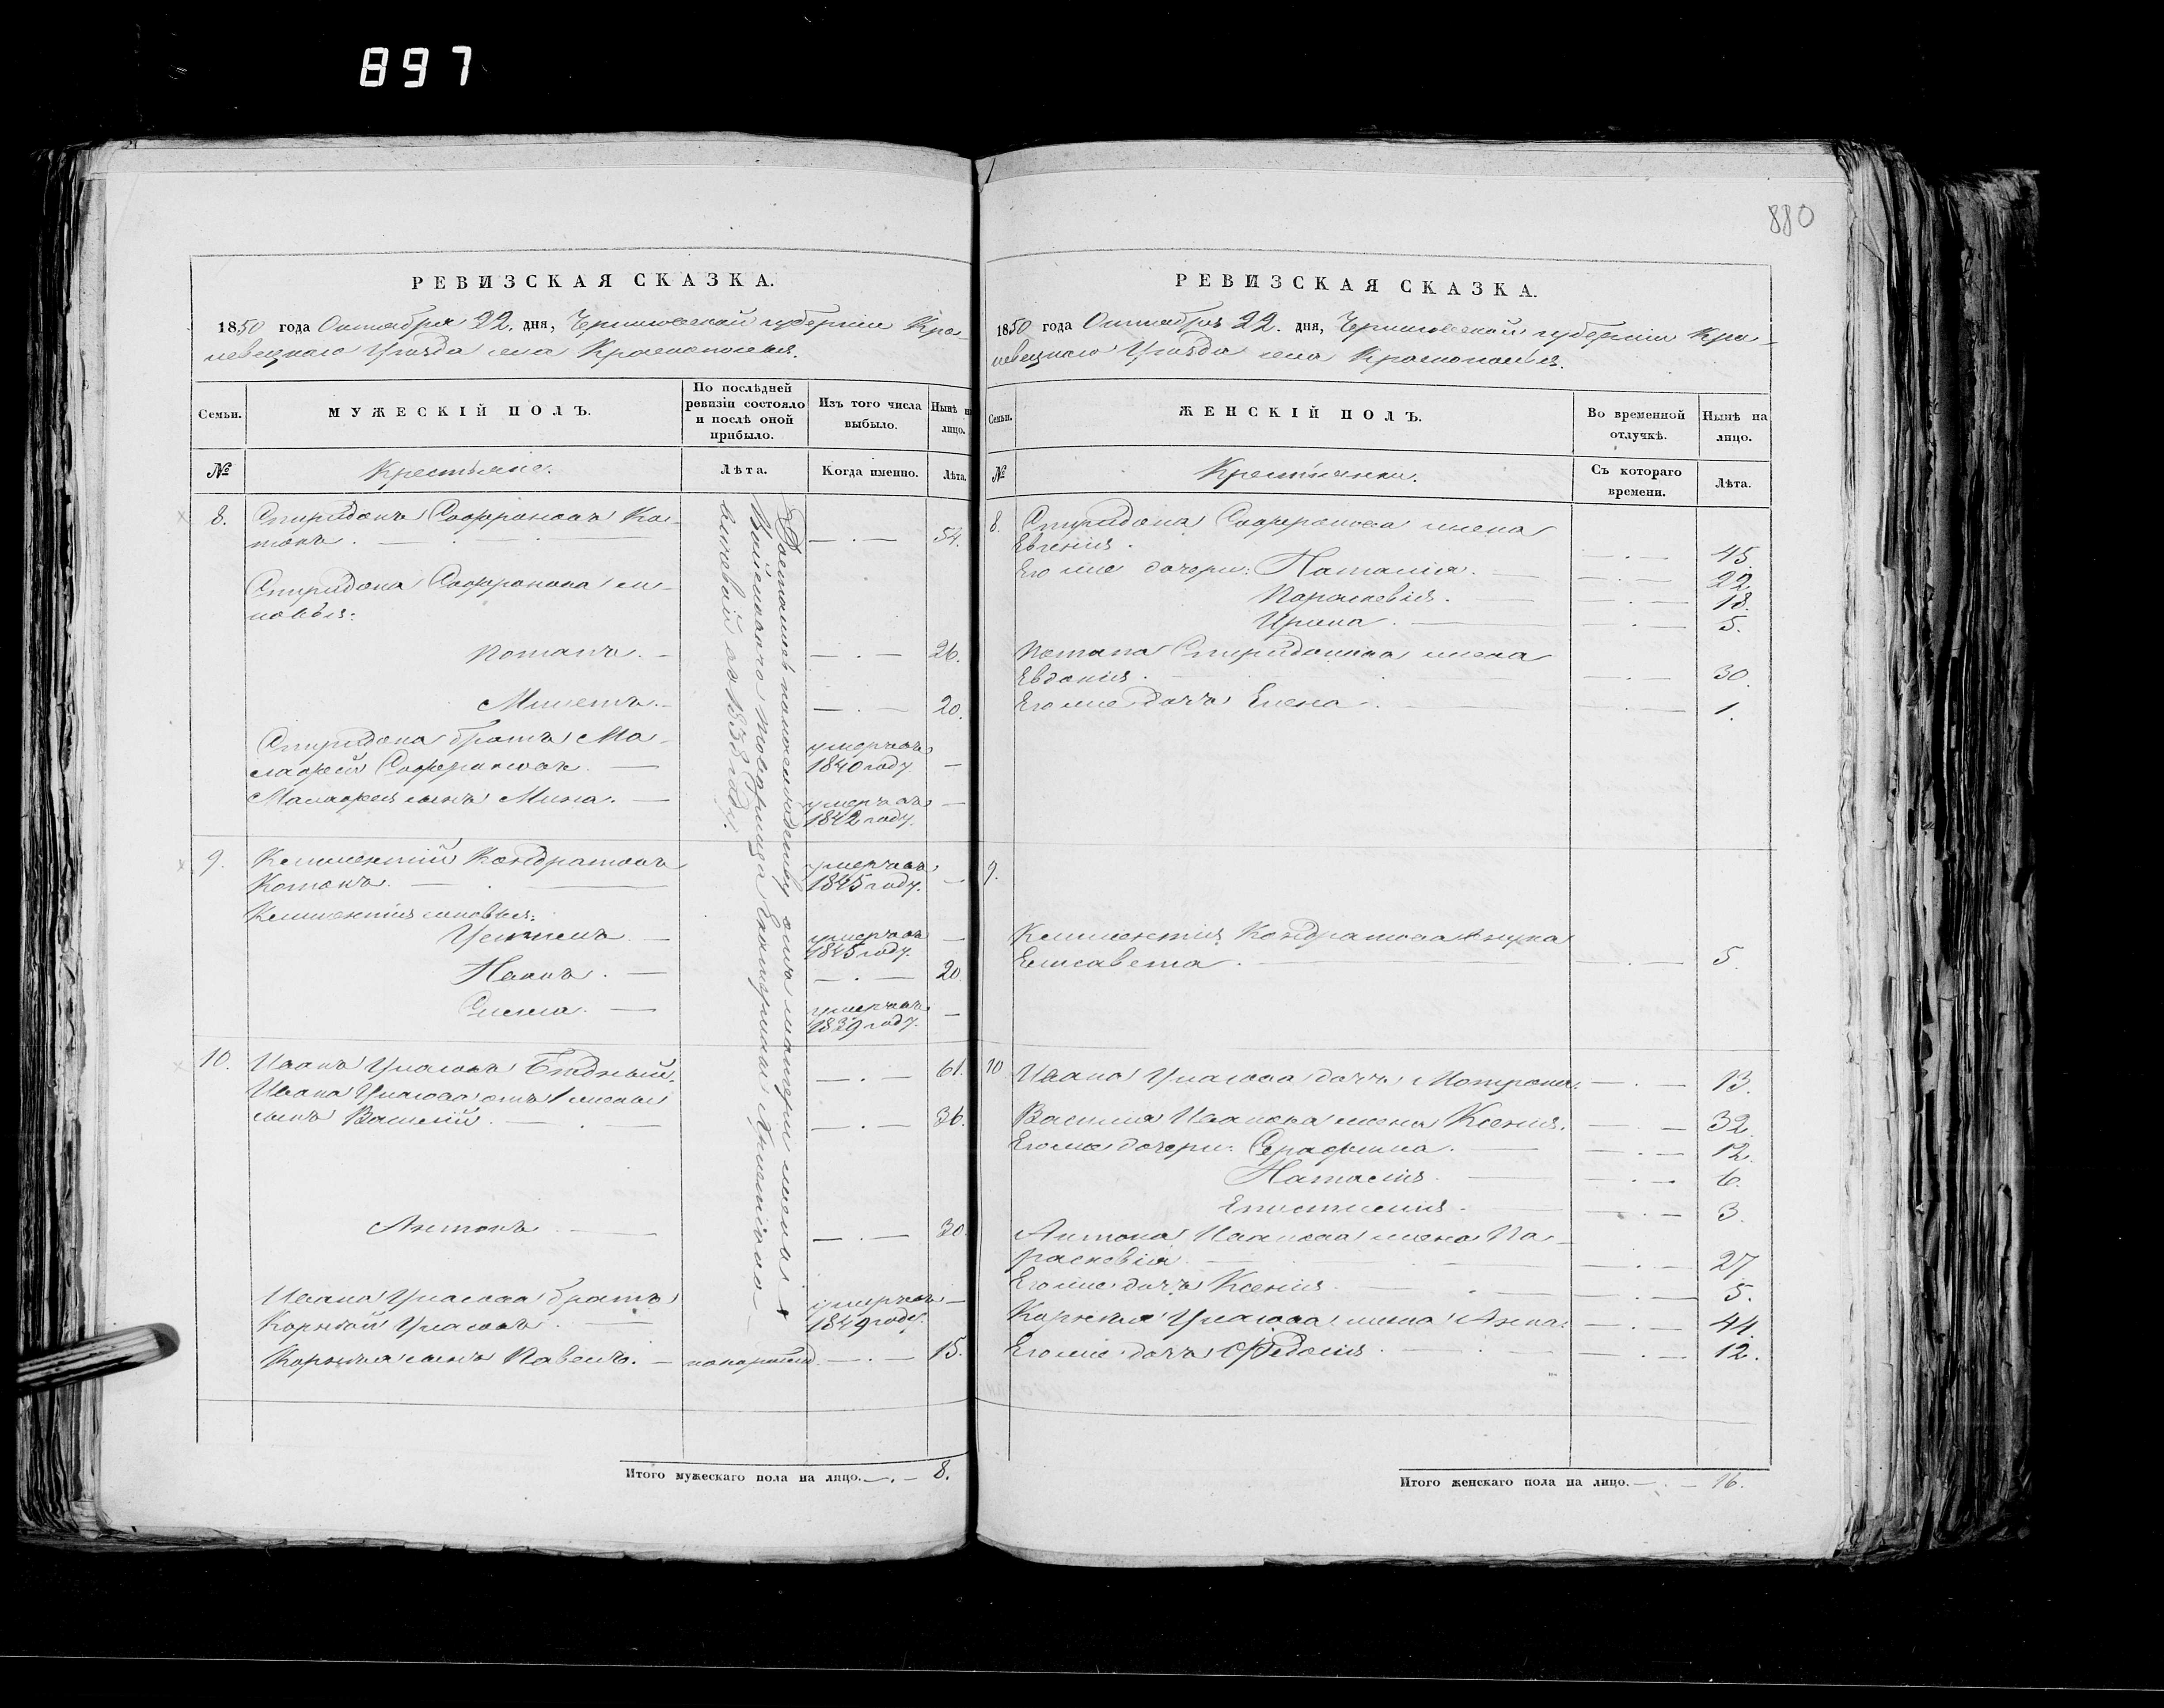 897
880
РЕВИЗСКАЯ СКАЗКА.
1850 года Октября 22. дня, Черниговской губернiи Кро-
левецкаго Уѣзда села Краснополья.
Семьи.
МУЖЕСКIЙ ПОЛЪ.
По послѣдней ревизiи состояло и послѣ оной прибыло.
Изъ того числа выбыло.
Нынѣ на лицо.
№
Крестьяне.
Лѣта.
Когда именно.
Лѣта.
8. Спиридонъ Софроновъ Ко-
токъ. 54.
Спиридона Софронова сы-
новья:
Потапъ. 26.
20.
Спиридона братъ Ма-
лафей Софроновъ. умерчавъ 1840 году.
Малафея сынъ Мина. умерчавъ 1842 году.
9. Климентiй Кондратовъ
Котокъ. умерчавъ 1845 году.
Климентiя сыновья:
умерчавъ 1845 году.
Иванъ. 20.
умерчавъ 1839 году.
10. Иванъ Бѣдный. 61.
Ивана отъ 1 жены
сынъ Василiй. 36.
Антонъ 30.
Ивана братъ
Корнѣй умерчавъ 1849 году.
Корнѣя сынъ Павелъ. 15.
Доставшiеся по наслѣдству отъ матери жены
Войсковаго товарища Екатерины
въ 1838 году.
Итого мужескаго пола на лицо. 8.
РЕВИЗСКАЯ СКАЗКА.
1850 года Октября 22. дня, Черниговской губернiи Кро-
левецкаго Уѣзда села Краснополья.
Семьи.
ЖЕНСКIЙ ПОЛЪ.
Во временной отлучкѣ.
Нынѣ на лицо.
№
Крестьянки.
Съ котораго времени.
Лѣта.
8. Спиридона Софронова жена
Евгенiя. 45.
Его же дочери: Наталiя. 22.
Парасковiя. 18.
Ирина. 5.
Потапа Спиридонова жена
Евдокiя. 30.
Его же дочь Елена 1.
9.
Климентiя Кондратова внука
Елисавета. 5.
10 Ивана дочь Матрона. 13.
Василiя Иванова жена Ксенiя. 32.
Его же дочери: Серафима. 12.
Наталiя 6.
3.
Антона Иванова жена Па-
расковiя 27
Его же дочь Ксенiя. 5.
Корнѣя жена Анна. 44.
Его же дочь Ѳедосiя 12.
Итого женскаго пола на лицо. 16.